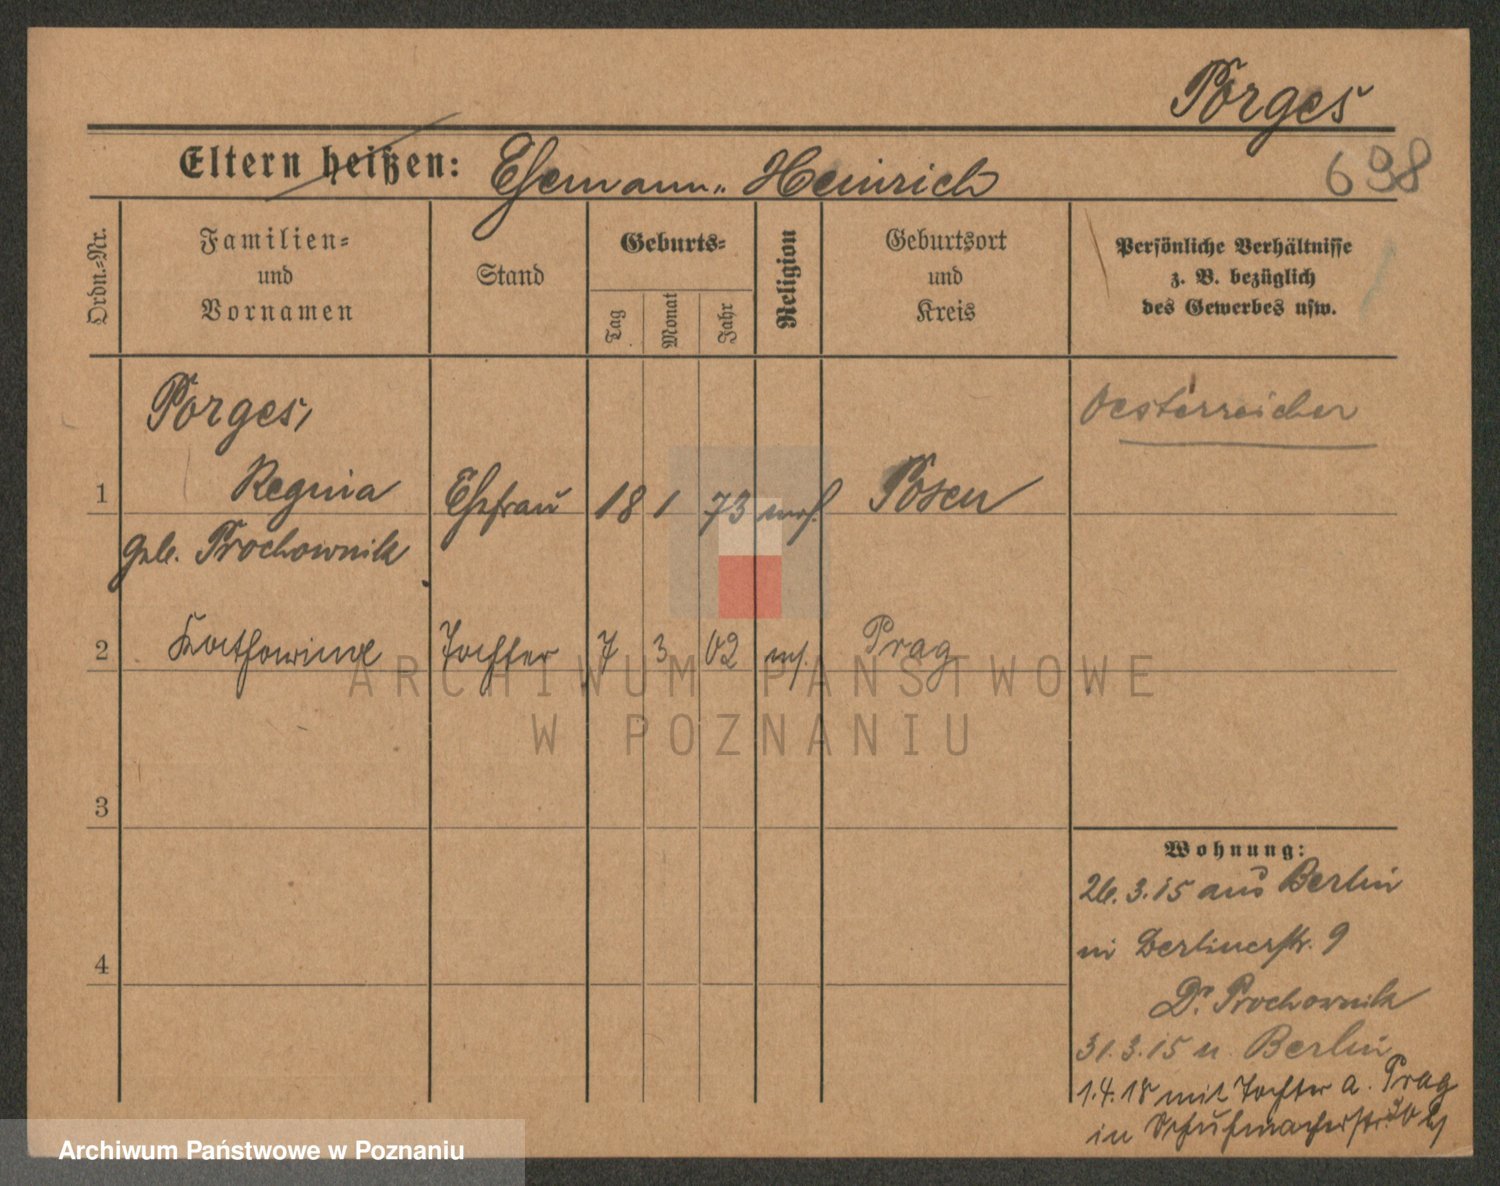 Porges
Eltern heißen: Ehemann: Heinrich
698
Ordn.-Nr.
Familien-
und
Vornamen
Stand
Geburts-
Tag
Monat
Jahr
Religion
Geburtsort
und
Kreis
Persönliche Verhältnisse
z. B. bezüglich
des Gewerbes usw.
Porges,
Oesterreicher
1 Regina Ehefrau 18 1 73 mos. Posen
geb. Prochownik
2 Katharina Tochter 7 3 02 Prag
3
4
Wohnung:
26.3.15 aus Berlin
in Berlinerstr. 9
Dr. Prochownik
31.3.15 n. Berlin
1.4.18 mit Tochter a. Prag
in Schuhmacherstr.
ARCHIWUM PAŃSTWOWE
W POZNANIU
Archiwum Państwowe w Poznaniu